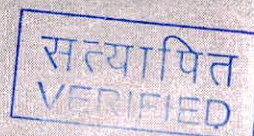 सत्यापित
VERIFIED